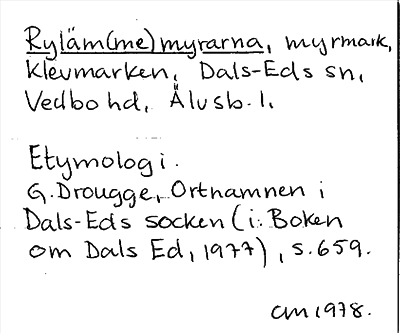 Ryläm(me)myrarna, myrmark,
Klevmarken, Dals-Eds sn,
Vedbo hd, Älvsb. l.
Etymologi.
G. Drougge, Ortnamnen i
Dals-Eds socken (i: Boken
om Dals Ed, 1977), s. 659.
CM 1978.